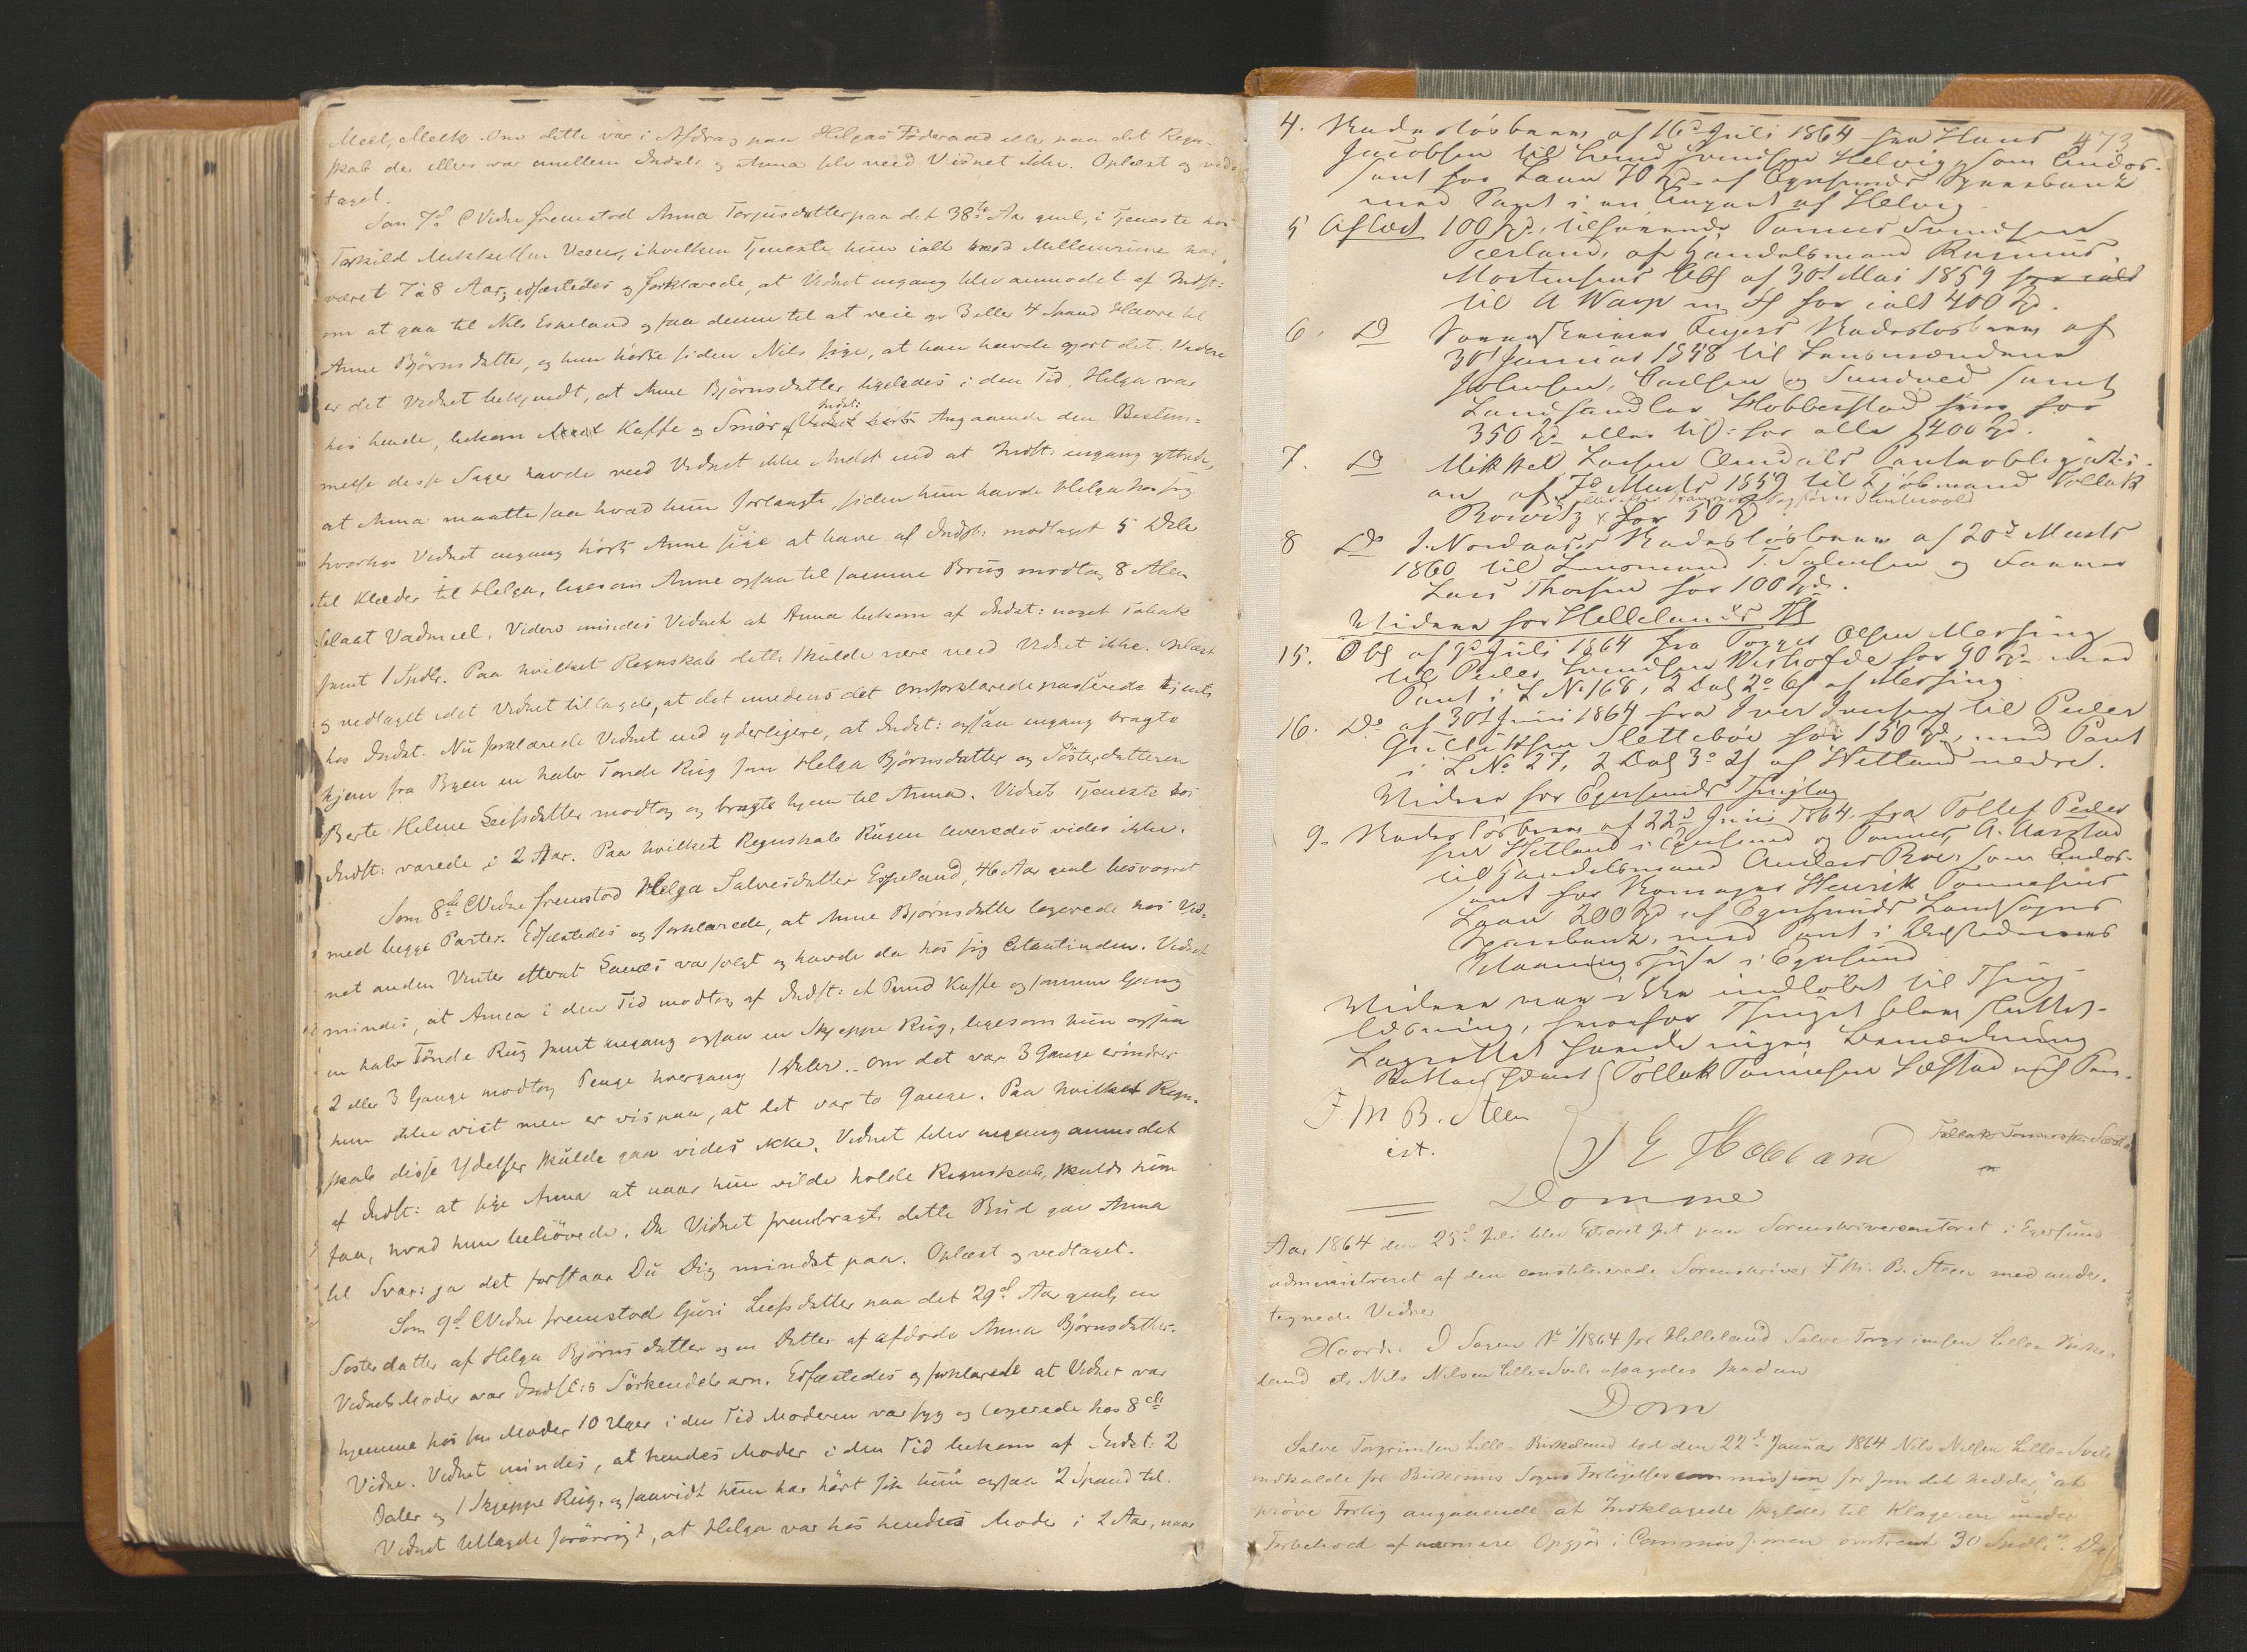 Meel, Melk. Om dette var i Afdrag paa Helgas Föderaad eller paa det Regn-
skab der ellers var mellem Indst: og Anna selv veed Vidnet ikke. Oplæst og ved-
taget.
Som 7d Vidne fremstod Anna Torjusdatter paa det 38te Aar gml, i Tjeneste hos
Torkild Mikkelsen Veen, i hvilken Tjeneste hun ialt med Mellemrum har
været 7 à 8 Aar, edfæstedes og forklarede, at Vidnet engang blev anmodet af Indst:
om at gaa til Nils Espeland og faa denne til at veie op 3 eller 4 Spand Havre til
Anne Björnsdatter, og hun hörte siden Nils sige, at han havde gjort det. Videre
er det Vidnet bekjendt, at Anne Björnsdatter ligeledes i den Tid, Helga var
hos hende, bekom Kaffe og Smör af Indst: Angaaende den Bestem-
melse disse Sager havde veed Vidnet ikke Andet end at Indst: engang yttrede,
at Anna maatte faa hvad hun forlangte, siden hun havde Helga hos sig
hvorhos Vidnet engang hörte Anne sige at have af Indst: modtaget 5 Daler
til Klæder til Helga, ligesom Anne ogsaa til samme Brug modtog 8 Alen
blaat Vadmeel. Videre mindes Vidnet at Anna bekom af Indst: noget Tobak
samt 1 Spdlr. Paa hvilket Regnskab dette skulde være veed Vidnet ikke. Oplæst
og vedtaget idet Vidnet tillagde, at det imedens det omforklarede passerede tjente
hos Indst. Nu forklarede Vidnet end yderligere, at Indst: ogsaa engang bragte
hjem fra Byen en halv Tönde Rug som Helga Björnsdatter og Sösterdatteren
Berte Helene Leifsdatter modtog og bragte hjem til Anna. Vidnets Tjeneste hos
Indst: varede i 2 Aar. Paa hvilket Regnskab Rugen leveredes vides ikke.
Som 8de Vidne fremstod Helga Salvesdatter Espeland, 46 Aar gml besvogret
med begge Parter. Edfæstedes og forklarede, at Anne Bjornsdatter logerede hos Vid-
net anden Vinter efterat var solgt og havde da hos sig Citantinden. Vidnet
mindes, at Anna i den Tid modtog af Indst: et Pund Kaffe og samme Gang
en halv Tönde Rug samt engang ogsaa en Skjeppe Rug, ligesom hun ogsaa
2 eller 3 Gange modtog Penge hvergang 1 Daler. Om det var 3 Gange erindrer
hun ikke vist men er vis paa, at det var to Gange. Paa hvilket Regn-
skab disse Ydelser skulde gaa vides ikke. Vidnet blev engang anmodet
af Indst: at sige Anna at naar hun vilde holde Regnskab, skulde hun
faa, hvad hun behövede. Da Vidnet frembragte dette Bud gav Anna
til Svar: ja det forstaar Du Dig mindst paa. Oplæst og vedtaget.
Som 9d Vidne fremstod Guri Leifsdatter paa det 29d Aar gml, en
Sosterdatter af Helga Björnsdatter og en Datter af afdöde Anna Björnsdatter.
Vidnets Moder var Indst:s Sörkendebarn. Edfæstedes og forklarede at Vidnet var
hjemme hos sin Moder 10 Uger i den Tid Moderen var syg og logerede hos 8de
Vidne. Vidnet mindes, at hendes Moder i den Tid bekom af Indst: 2
Daler og 1 Skjeppe Rug, og saavidt hun har hört fik hun ogsaa 2 Spand til.
Vidnet tillagde forövrigt, at Helga var hos hendes Moder i 2 Aar, naar
473
4. Skadeslösbrev af 16d Juli 1864 fra Hans
Jacobsen til Svend Svendsen Helvig, som Endos-
sent for Laan 70 Spd af Egersunds Sparebank
med Pant i en Anpart af Helvig
5 Aflæst 100 Spd, tilhörende Tønnes Svendsen
af Handelsmand Rasmus
Mortensens Obl af 30d Mai 1859 for ialt
til A Waage m fl for ialt 400 Spd.
6. Do Skadeslösbrev af
30d Januar 1858 til Lensmændene
Carlsen og Sundved samt
Landhandler Hobberstad for
350 Spd eller for alle 1400 Spd.
7. Do Mikkel Larsen Pantobligati-
on af 7d Marts 1859 til Kjøbmand Tollak
for 50 Spd
8 Do J. Nordaas's Skadeslösbrev af 20d Marts
1860 til Lensmand T. Salvesen og
Lars Thorsen for 100 Spd.
Videre for Hellelands Thl
15. Obl af 9d Juli 1864 fra Torger Olsen Messing
til Peder Svendsen for 90 Spd med
Pant i L No 168, 2 Dal 2 o 6 s af Messing
16. Do af 30d Juni 1864 fra Iver Jensen til Peder
Slettebøe for 150 Spd, med Pant
i L No 27, 2 Dal 3 o 2 s af Hetland nedre.
Videre for Egersunds Thinglag
9. Skadeslösbrev af 22d Juni 1864 fra Tollef Peder
sen Hetland i Egersund og Tønnes A. Aarstad
til Handelsmand Anders Roe, som Endos-
sent for Henrik Tønnesens
Laan 200 Spd af Egersunds Landsogns
Sparebank, med Pant i
i Egersund
Videre var ikke indlöbet til Thing-
læsning, hvorfor Thinget blev sluttet.
Lagrettet havde ingen Bemærkning
Tollak Tønnesen Sæstad
F M B. Steen
cst.
Tollak Tønnessen
Domme
Aar 1864 den 25d Juli blev Extraret sat paa Sorenskrivercontoret i Egersund
administreret af den constituerede Sorenskriver F. M. B. Steen med under-
tegnede Vidner
Hvorda: I Sagen No 1/1864 for Helleland Salve Torgrimsen Lille-Birke-
land ctr Nils Nilsen Lille-Svele afsagdes saadan
Dom
Salve Torgrimsen Lille-Birkeland lod den 22d Januar 1864 Nils Nilsen Lille-Svele
indkalde for Birkrims Sogns Forligelsescommission for som det hedder, "at
pröve Forlig angaaende at Indklagede skylder til Klageren under
Forbehod af nærmere Opgjör i Commissionen omtrent 30 Spdlr". Da